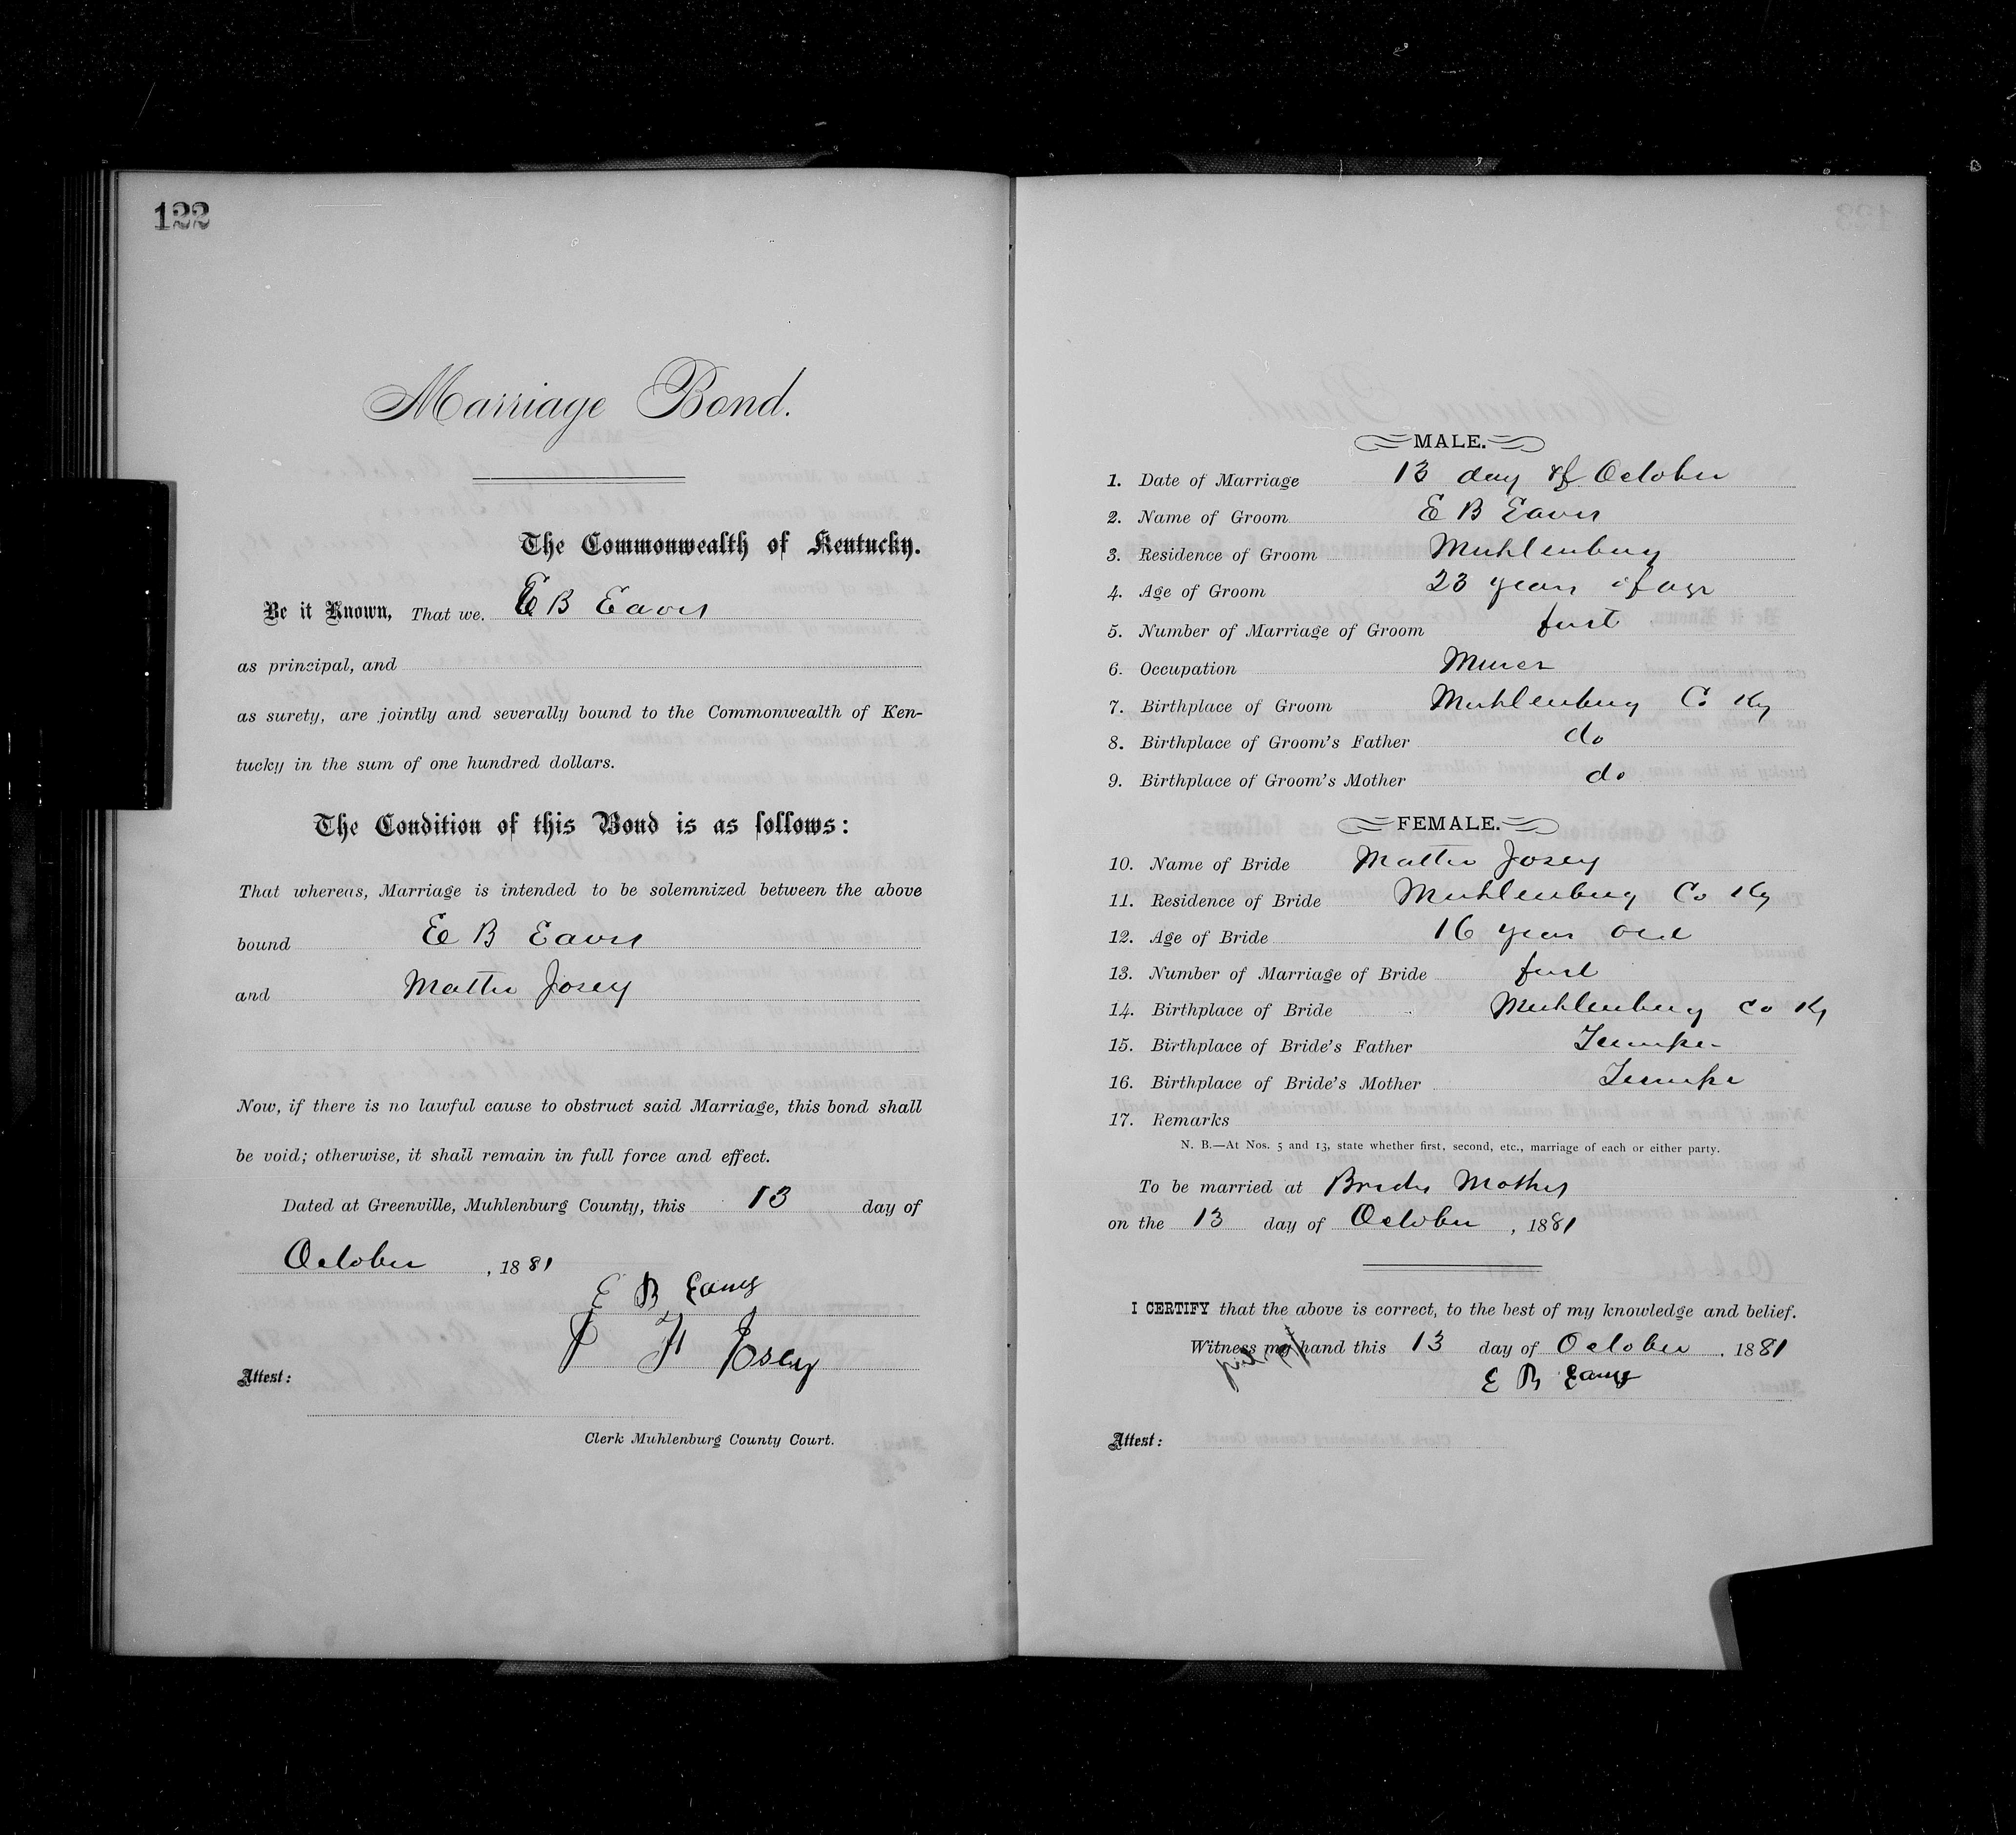 122
Marriage Bond.
The Commonwealth of Kentucky.
Be it Known, That we, E B Eaves
as principal, and
as surety, are jointly and severally bound to the Commonwealth of Ken-
tucky in the sum of one hundred dollars.
The Condition of this Bond is as follows:
That whereas, Marriage is intended to be solemnized between the above
bound E B Eaves
and Mattie Josey
Now, if there is no lawful cause to obstruct said Marriage, this bond shall
be void; otherwise, it shall remain in full force and effect.
Dated at Greenville, Muhlenburg County, this 13 day of
October, 1881
E B Eaves
Attest:
Clerk Muhlenburg County Court.
MALE.
1. Date of Marriage 13 day of October
2. Name of Groom E B Eaves
3. Residence of Groom Muhlenburg
4. Age of Groom 23 years of age
5. Number of Marriage of Groom first
6. Occupation Miner
7. Birthplace of Groom Muhlenburg Co Ky
8. Birthplace of Groom's Father do
9. Birthplace of Groom's Mother do
FEMALE.
10. Name of Bride Mattie Josey
11. Residence of Bride Muhlenburg Co Ky
12. Age of Bride 16 years old
13. Number of Marriage of Bride first
14. Birthplace of Bride Muhlenburg Co Ky
15. Birthplace of Bride's Father
16. Birthplace of Bride's Mother
17. Remarks
N. B.—At Nos. 5 and 13, state whether first, second, etc., marriage of each or either party.
To be married at Brides Mothers
on the 13 day of October, 1881
I CERTIFY that the above is correct, to the best of my knowledge and belief.
Witness my hand this 13 day of October, 1881
E B Eaves
Attest: